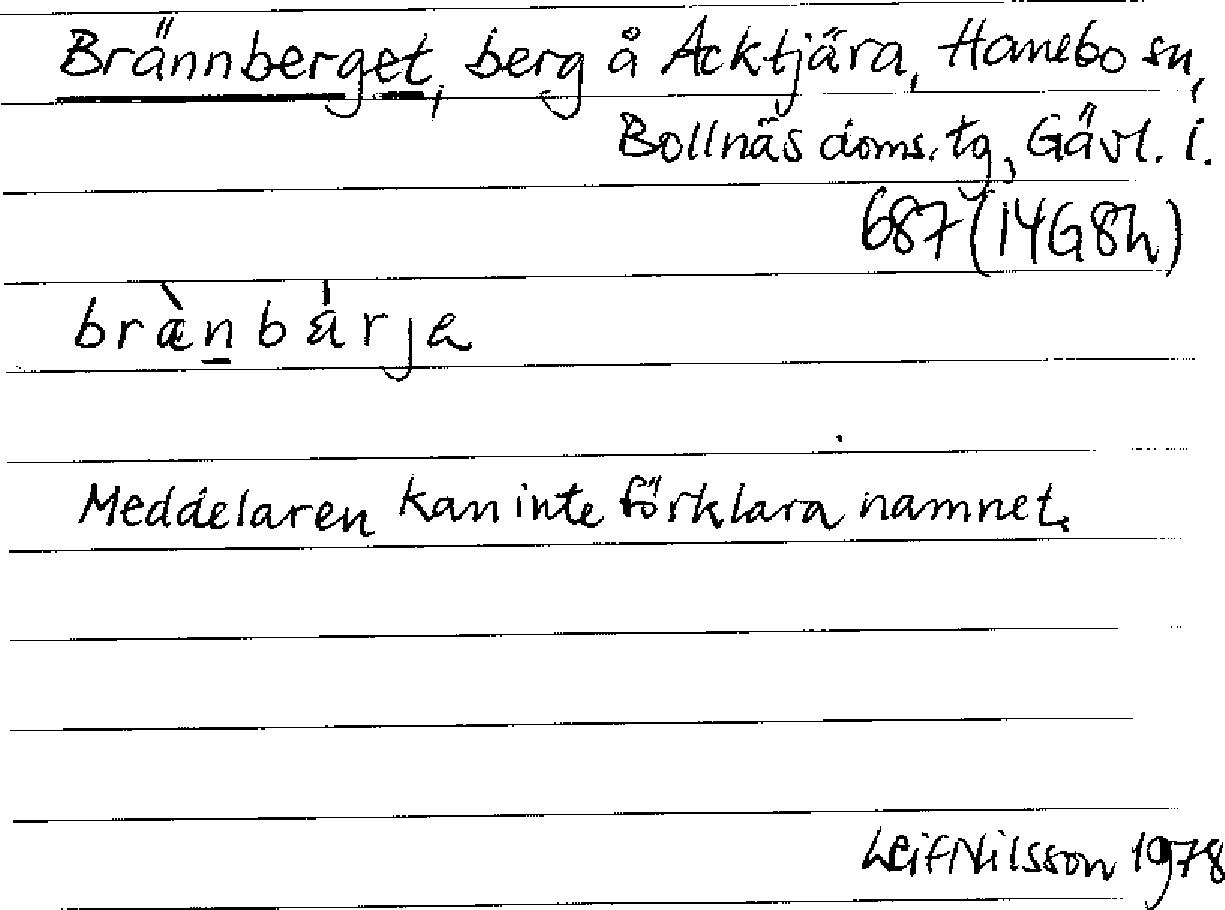 Brännberget, berg å Acktjära, Hanebo sn,
Bollnäs doms. tg, Gävl. l.
687 (14G8h)
bræ̀n̲bárja
Meddelaren kan inte förklara namnet.
Leif Nilsson 1978